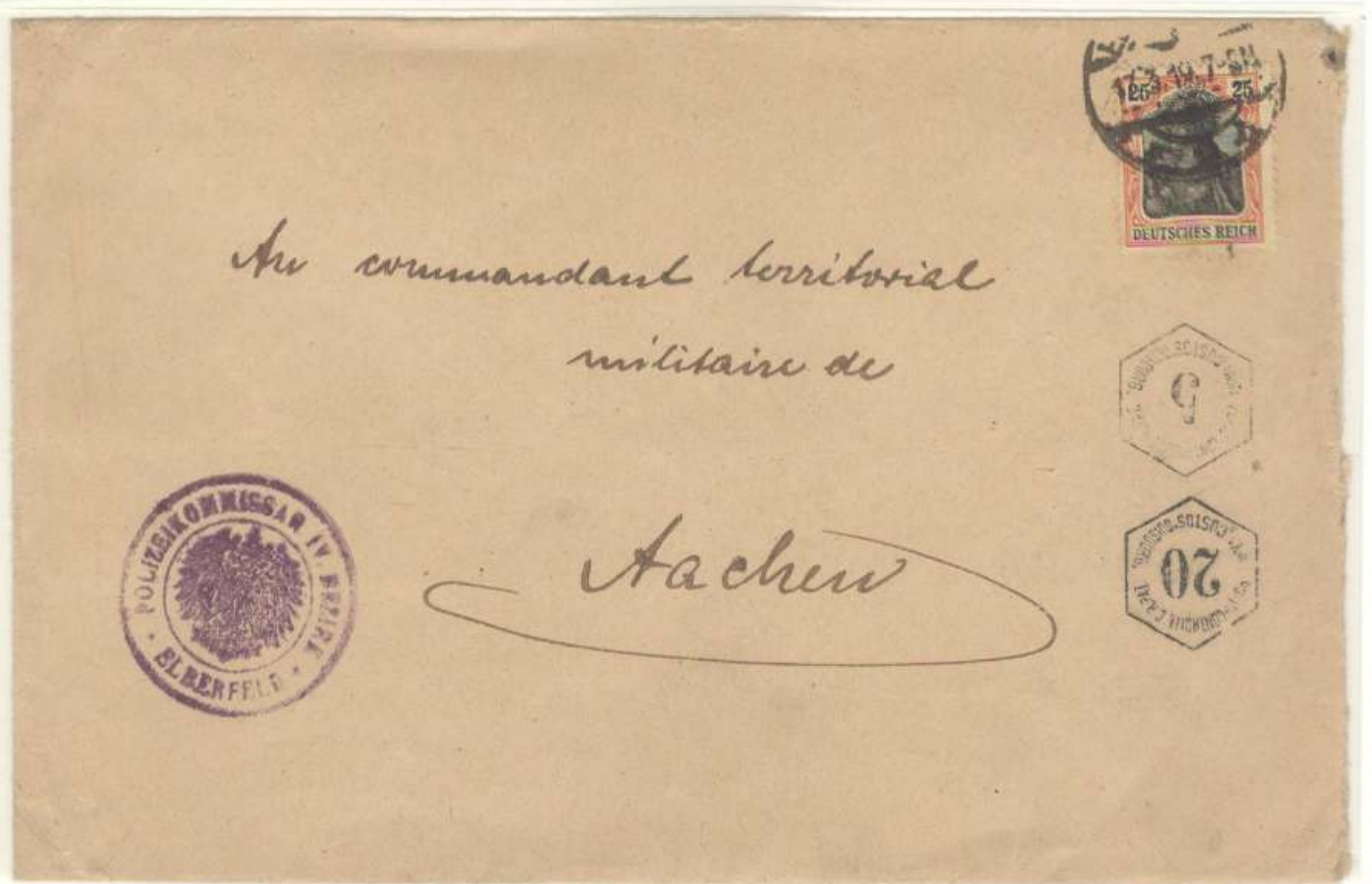 17.3.19.7-8N
25 25
DEUTSCHES REICH
Au commandant territorial
militaire de
Aachen
5
20
POLIZEIKOMMISSAR IV. BEZIRK
ELBERFELD